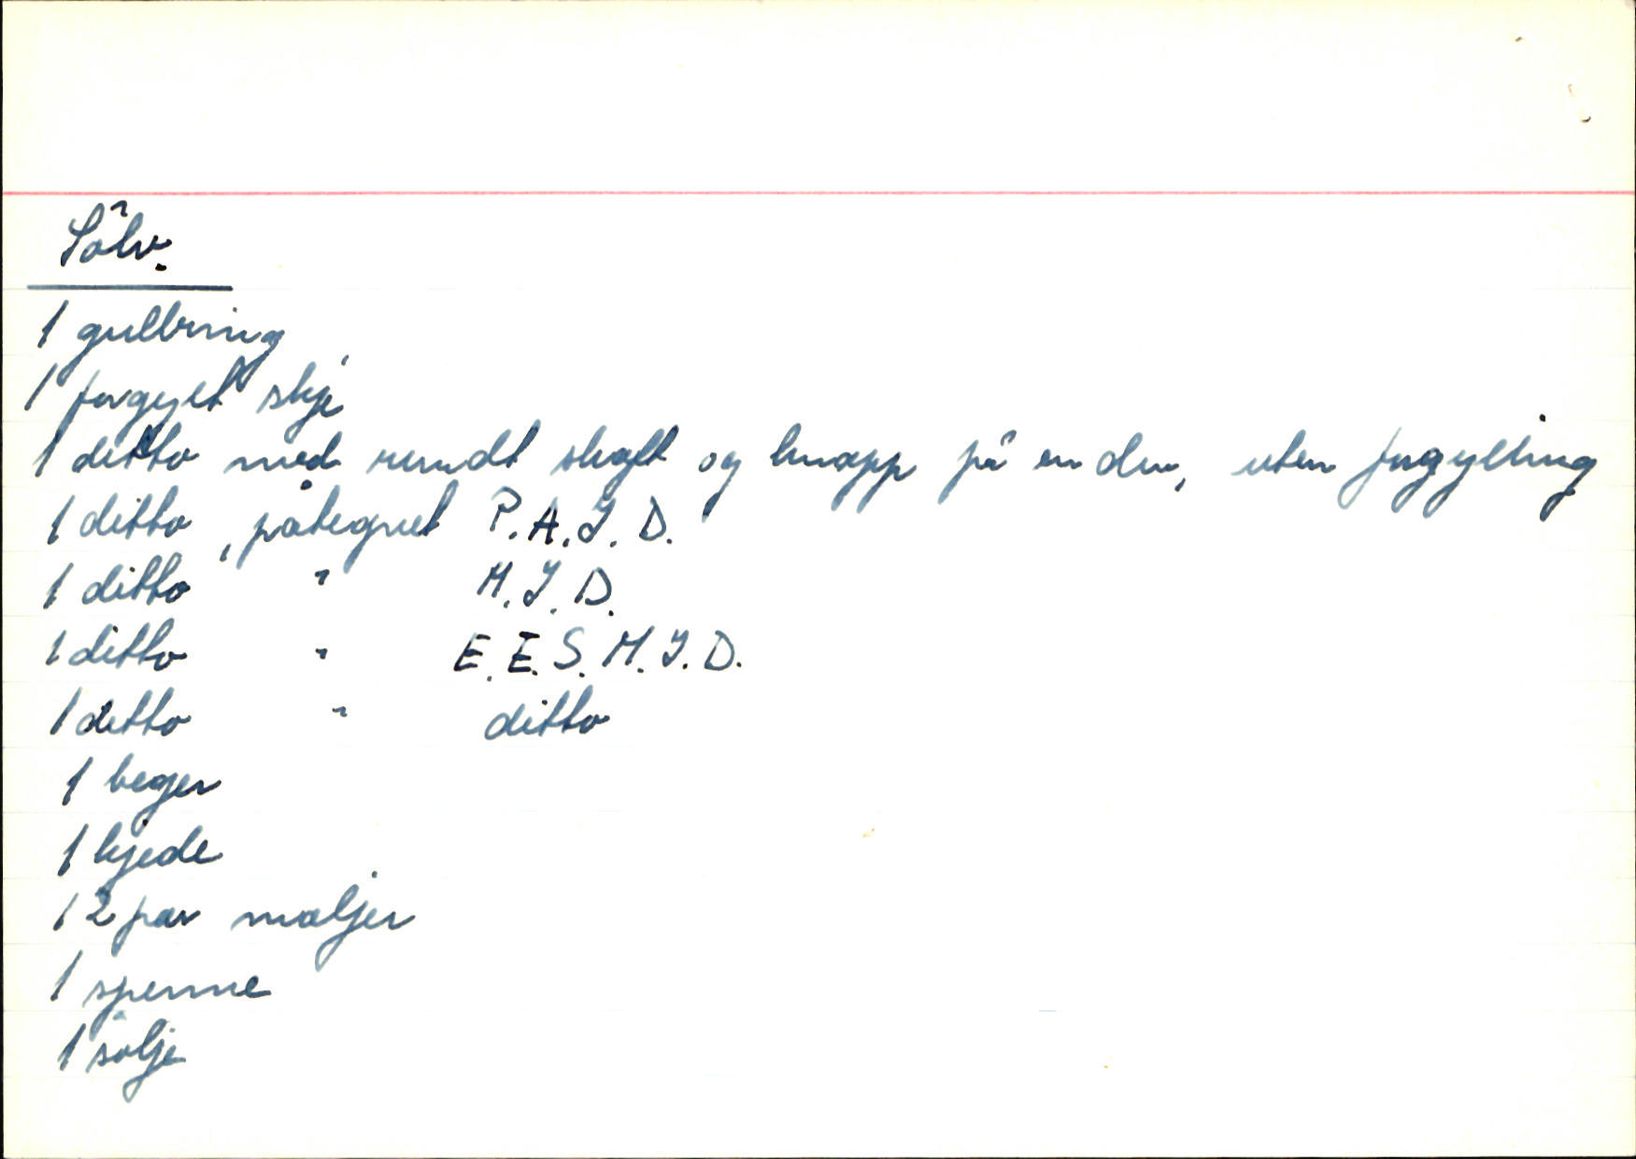 Sölv.
1 gullring
1 forgylt skje
1 ditto med rundt skaft og knapp på enden, uten forgylling
1 ditto, påtegnet P.A.J.D.
1 ditto " H.J.D.
1 ditto " E.E.S.H.J.D.
1 ditto " ditto
1 beger
1 kjede
12 par maljer
1 spenne
1 sölje